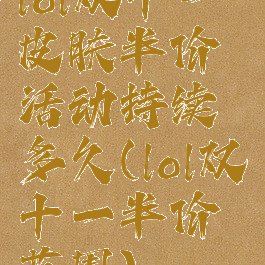 lol双十一
皮肤半价
活动持续
多久(lol双
十一半价
范围)